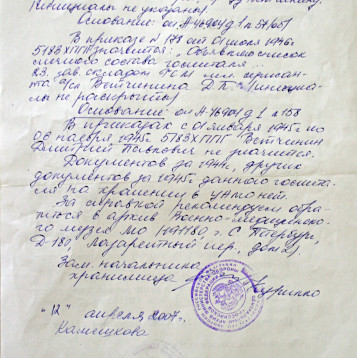 (инициалы не указаны)
Основание: оп. А-46904 д. 1 л. 57(65)
В приказе N 178 от 01 июля 1946г.
5783 ХППГ значится: "Объявляю список
личного состава госпиталя...
23. зав. складом ГСМ мл. сержант
Ветчинина Д. П. (инициалы
не раскрыты)
Основание: оп. А-46904 д. 1 л. 158
В приказах с 01 января 1945г по
06 1945г. 5783 ХППГ Ветчинин
Дмитрий не значится.
Документов за 1944г, других
документов за 1945г данного госпиталя
на хранении в нет.
За справкой рекомендуем обратиться
в архив Военно-медицинского
музея МО 191180, г. С. Петербург,
Д-180, Лазаретный пер. дом 2).
Зам. начальника
хранилища
"12" апреля 2007г.
Камешкова